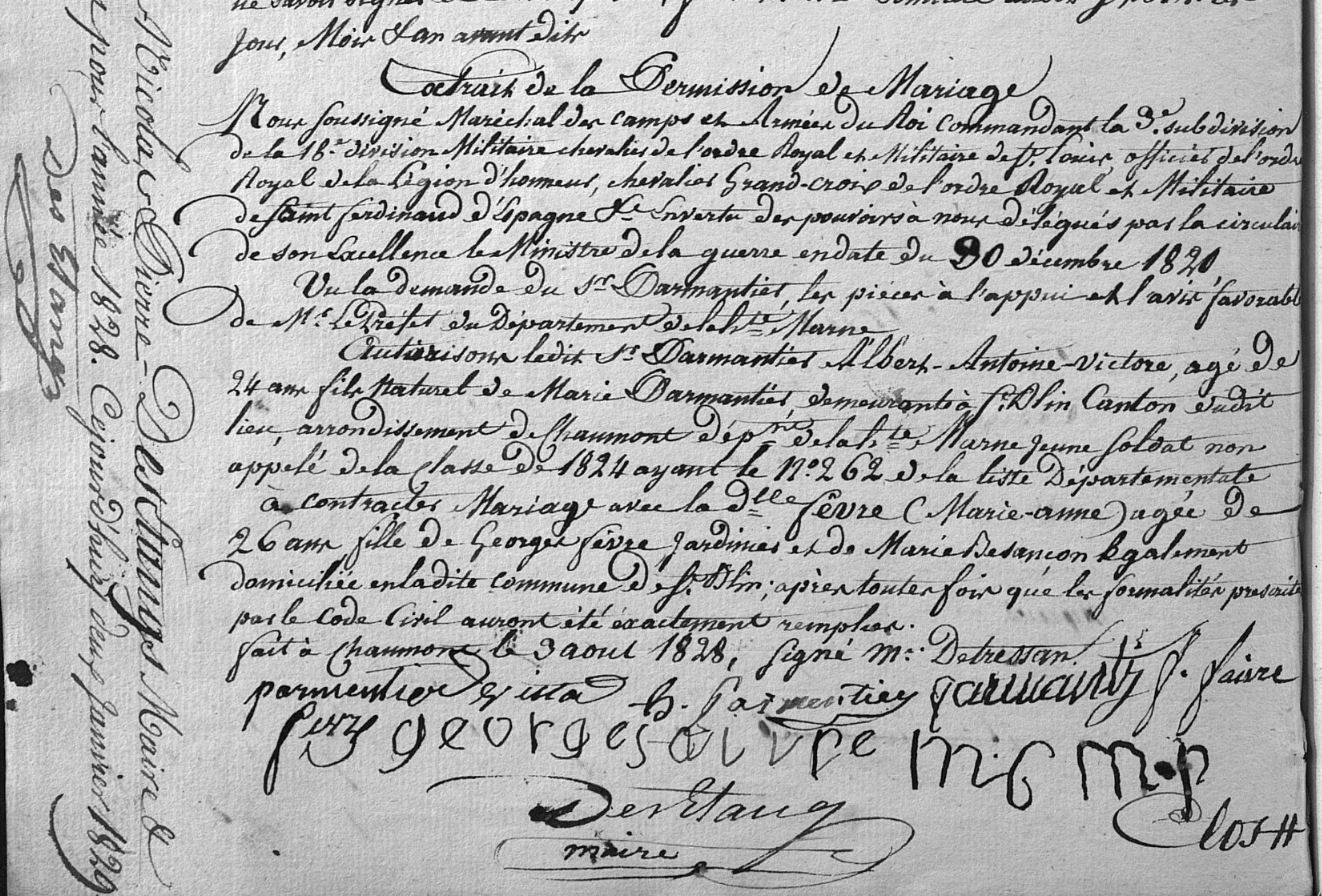 ne savoir signer
jour, Mois & an avant dits
Extrait de la Permission de Mariage
Nous soussigné Maréchal des camps et Armées du Roi commandant la 3.e subdivision
de la 18.e division Militaire chevalier de l'ordre Royal et Militaire de St. Louis, officier de l'ordre
Royal de la Légion d'honneur, chevalier Grand-croix de l'ordre Royal et Militaire
de Saint Ferdinand d'Espagne &.a En vertu des pouvoirs à nous délégués par la circulaire
de son Excellence le Ministre de la guerre en date du 30 décembre 1820,
Vu la demande du Sr. Darmantier, les pièces à l'appui et l'avis favorable
de Mr. Le Préfet du Département de la hte. Marne
Autorisons ledit Sr. Darmantier Albert-Antoine-Victore, agé de
24 ans fils Naturel de Marie Darmantier, demeurante à St. Blin Canton dudit
lieu, arrondissement de Chaumont dépnt. de la hte. Marne jeune soldat non
appelé de la Classe de 1824 ayant le No. 262 de la liste Départementale
à contracter Mariage avec la dlle fêvre (Marie-anne) agée de
26 ans, fille de Georges fêvre Jardinier et de Marie Besançon Egalement
domiciliée en ladite commune de St. Blin; après toutes fois que les formalités prescrites
par le Code Civil auront été éxactement remplies.
fait à Chaumont le 3 aout 1828, signé Mr. Detressan.
parmentier h. Parmentier Jarmantis f. faivre
ferry georges faivre m.f m.p
DesEtangs Clos H
maire
Nicolas Pierre-DesEtangs Maire &
pour l'année 1828. Cejourd'huy deux Janvier 1829
Des Etangs